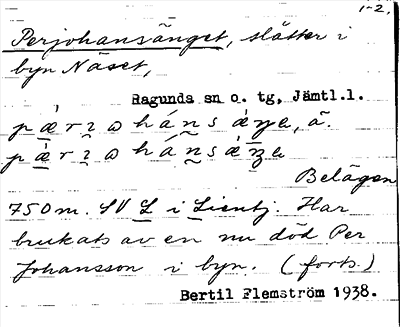 1-2.
Perjohansänget, slåtter i
byn Näset,
Ragunda sn o. tg, Jämtl.l.
Belägen
750 m. SV L i Lientj. Har
brukats av en nu död Per
Johansson i byn. (forts.)
Bertil Flemström 1938.